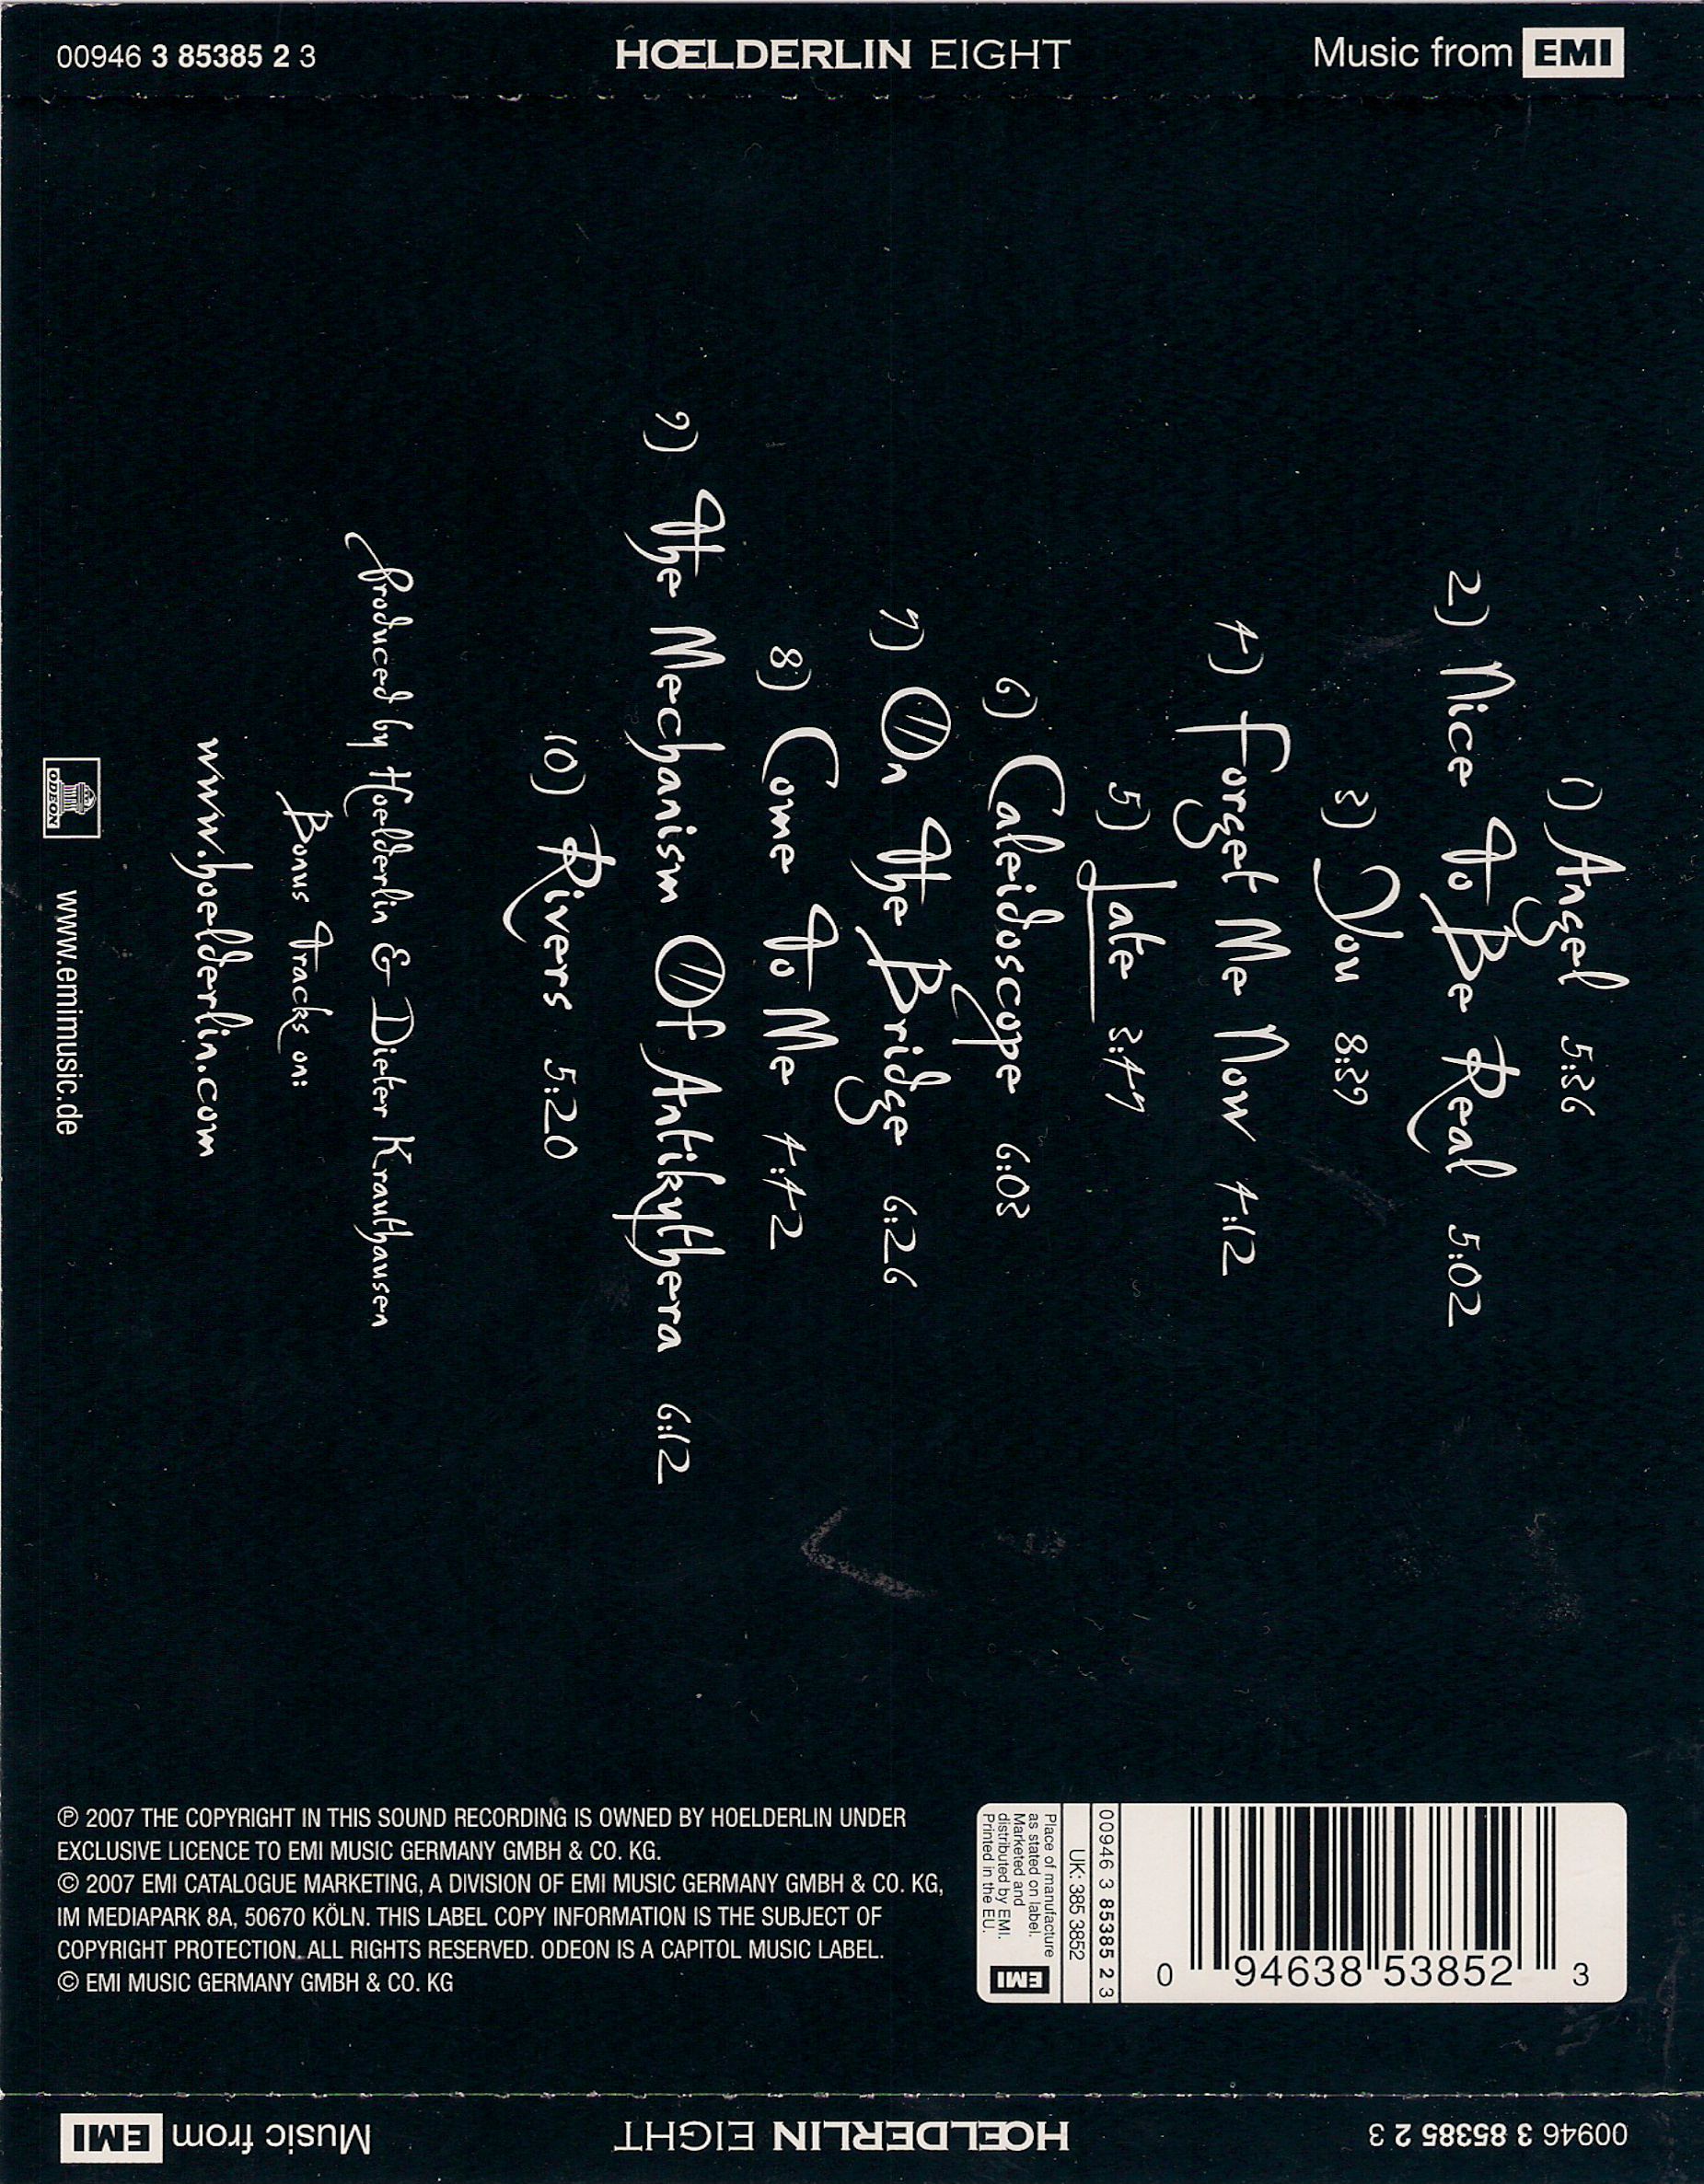 00946 3 85385 2 3
HŒLDERLIN EIGHT
Music from EMI
1) Angel 5:36
2) Nice To Be Real 5:02
3) You 8:39
4) Forget Me Now 4:12
5) Late 3:47
6) Caleidoscope 6:03
7) On The Bridge 6:26
8) Come To Me 4:42
9) The Mechanism Of Antikythera 6:12
10) Rivers 5:20
Produced by Hoelderlin & Dieter Krauthausen
Bonus Tracks on:
www.hoelderlin.com
ODEON
www.emimusic.de
℗ 2007 THE COPYRIGHT IN THIS SOUND RECORDING IS OWNED BY HOELDERLIN UNDER
EXCLUSIVE LICENCE TO EMI MUSIC GERMANY GMBH & CO. KG.
© 2007 EMI CATALOGUE MARKETING, A DIVISION OF EMI MUSIC GERMANY GMBH & CO. KG,
IM MEDIAPARK 8A, 50670 KÖLN. THIS LABEL COPY INFORMATION IS THE SUBJECT OF
COPYRIGHT PROTECTION. ALL RIGHTS RESERVED. ODEON IS A CAPITOL MUSIC LABEL.
© EMI MUSIC GERMANY GMBH & CO. KG
0 94638 53852 3
00946 3 85385 2 3
UK: 385 3852
Place of manufacture
as stated on label.
Marketed and
distributed by EMI.
Printed in the EU.
EMI
00946 3 85385 2 3
HŒLDERLIN EIGHT
Music from EMI